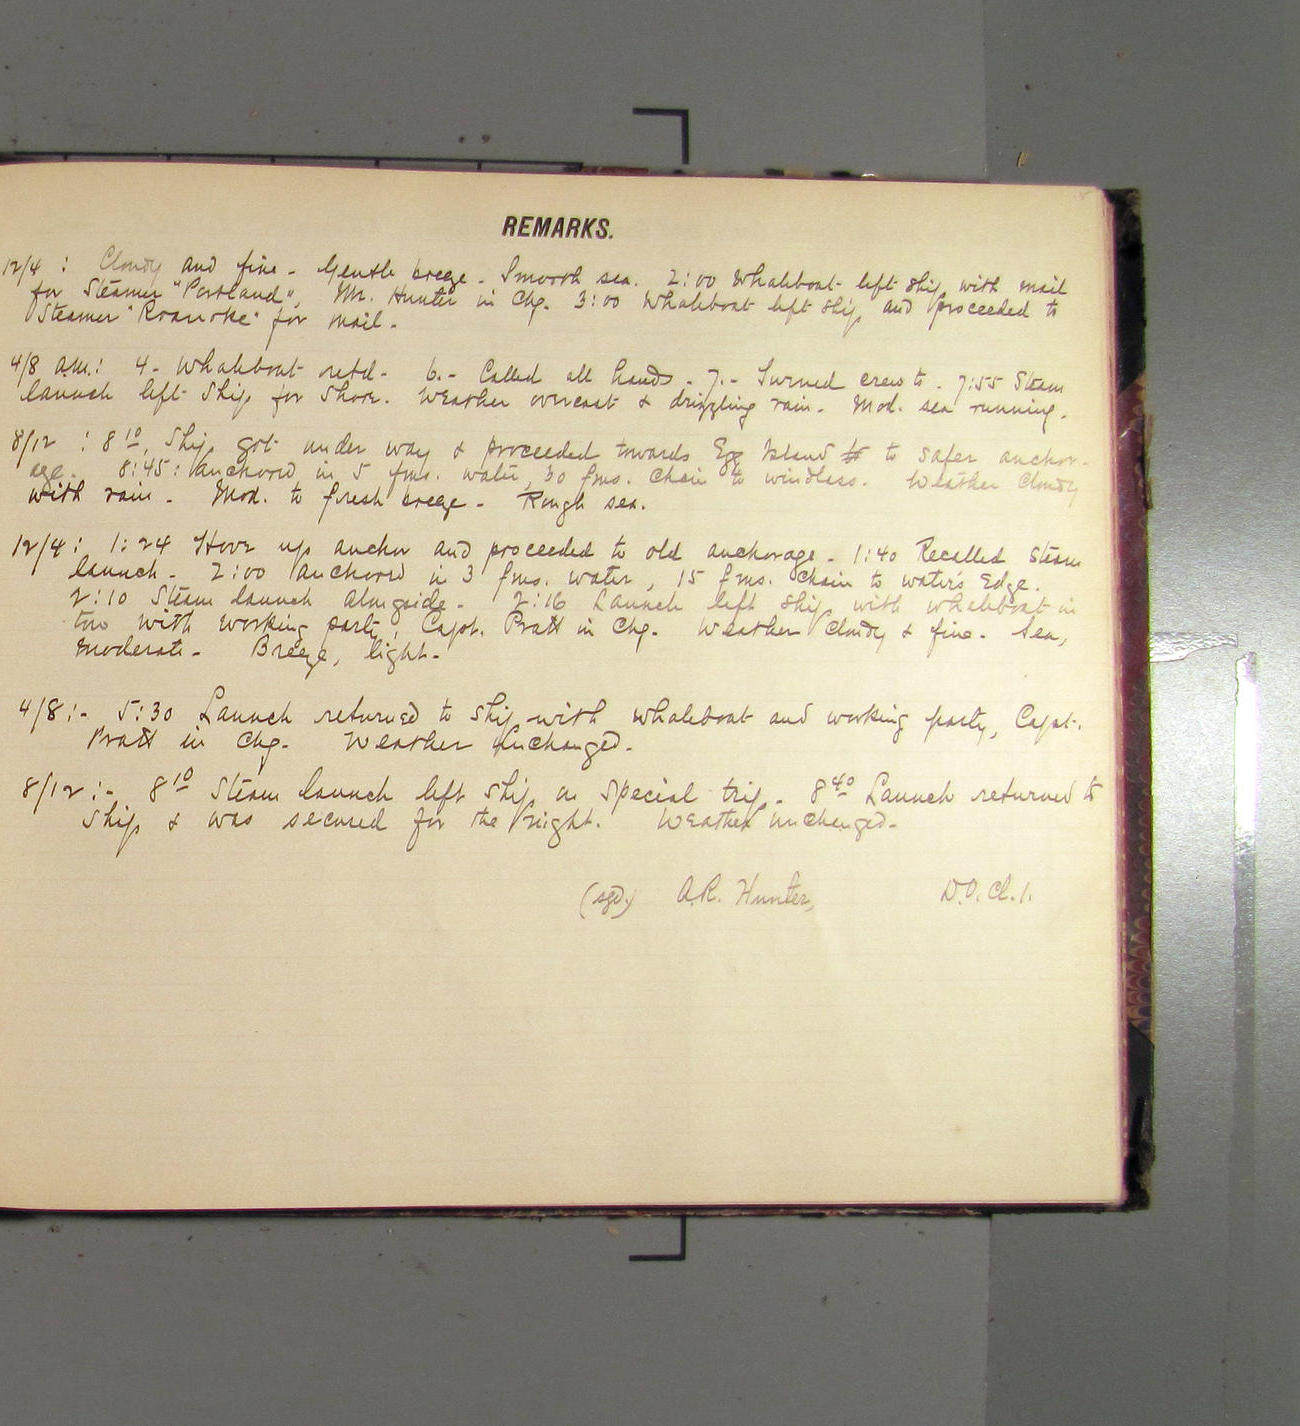 REMARKS.
12/4 : Cloudy and fine - Gentle breeze - Smooth sea. 2:00 Whaleboat left ship with mail
for Steamer "Portland", Mr. Hunter in Chg. 3:00 Whaleboat left ship and proceeded to
Steamer "Roanoke" for mail -
4/8 a.m.: 4 - Whaleboat retd - 6. - Called all hands - 7. - Turned crew to - 7:55 Steam
launch left Ship for Shore. Weather overcast & drizzling rain - Mod. sea running.
8/12 : 8 10, Ship got under way & proceeded towards Egg Island to safer anchor-
age - 8:45: anchored in 5 fms. water, 30 fms. Chain to windlass. Weather Cloudy
with rain - Mod. to fresh breeze - Rough sea.
12/4: 1:24 Hove up anchor and proceeded to old anchorage - 1:40 Recalled Steam
launch - 2:00 anchored in 3 fms. water, 15 fms. Chain to waters Edge.
2:10 Steam launch alongside - 2:16 Launch left ship with whaleboat in
tow with working party, Capt. Pratt in Chg. Weather Cloudy & fine. Sea,
Moderate - Breeze, light -
4/8:- 5:30 Launch returned to ship with whaleboat and working party, Capt.
Pratt in Chg. Weather Unchanged -
8/12:- 8 10 Steam launch left ship on special trip - 8 40 Launch returned to
Ship & was secured for the night. Weather unchanged -
(sgd.) A.R. Hunter, D.O. Cl. 1.